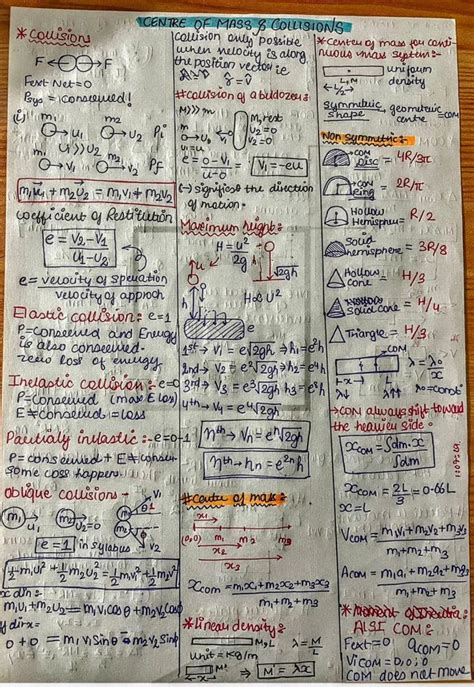 CENTRE OF MASS & COLLISIONS
* Collisions
F F
Fext Net = 0
Psys = conserved!
(i) m1 m2
u1 u2 Pi
u1 >> u2
m1 m2
V1 V2 Pf
m1u1 + m2u2 = m1v1 + m2v2
coefficient of Restitution
e = V2 - V1
u1 - u2
e = velocity of
velocity of
Elastic collision:- e = 1
P = conserved and Energy
is also conserved.
zero loss of energy.
Inelastic collision:- e = 0
P = conserved (max E loss)
E ≠ conserved = loss
Partially inelastic :- e = 0-1
P = conserved + E ≠
some happen.
oblique collisions -
m1 u1 m2 u2=0 m1 m2 V1 θ V2
e = 1 in syllabus
½m1u1² + ½m2u2² = ½m1v1² + ½m2v2²
x dirn:
m1u1 + m2u2 = m1v1 cosθ +
y dirn:
0 + 0 = m1v1 sinθ
collision only possible
when velocity is along
the position vector ie
# collision of a
M >>> m
m M, rest
u1 V2=0
V1 u2=0
e = 0 - V1
u - 0
V1 = -eu
(-) signifies the direction
of motion.
Maximum height:-
H = u²
2g
u √2gh
h H ∝ u²
e
1st → V1 = e√2gh ⇒ h1 = e²h
2nd → V2 = e²√2gh h2 = e⁴h
3rd → V3 = e³√2gh h3 = e⁶h
4th → V4 = e⁴√2gh
nth → Vn = eⁿ√2gh
nth → hn = e²ⁿh
# Center of mass:
x1
(0,0) m1 m2 m3
x2
x3
xcom = m1x1 + m2x2 + m3x3
m1 + m2 + m3
* linear density:
M, L λ = M
L
unit = kg/m
⇒ M = λx
* Center of mass for conti-
nuous mass system:-
uniform
L, M density
L/2
symmetric geometric = COM
shape centre
Non symmetric:-
COM
DISC = 4R/3π
COM
ring = 2R/π
Hollow
Hemisphere = R/2
Solid
hemisphere = 3R/8
Hollow
cone = H/3
Solid cone = H/4
Triangle = H/3
COM
λ = λ0 x
x
λ↓ λ↑ λ0 = const
→ COM always shift toward
the heavier side:
xcom = ∫dm.x
∫dm
xcom = 2L = 0.66L
3
x = L
Vcom = m1v1 + m2v2 + m3v3
m1 + m2 + m3
Acom = m1a1 + m2a2 +
m1 + m2 + m3
* Moment of Inertia:
COM:
Fext = 0 acom = 0
Vicom = 0,
COM does not move